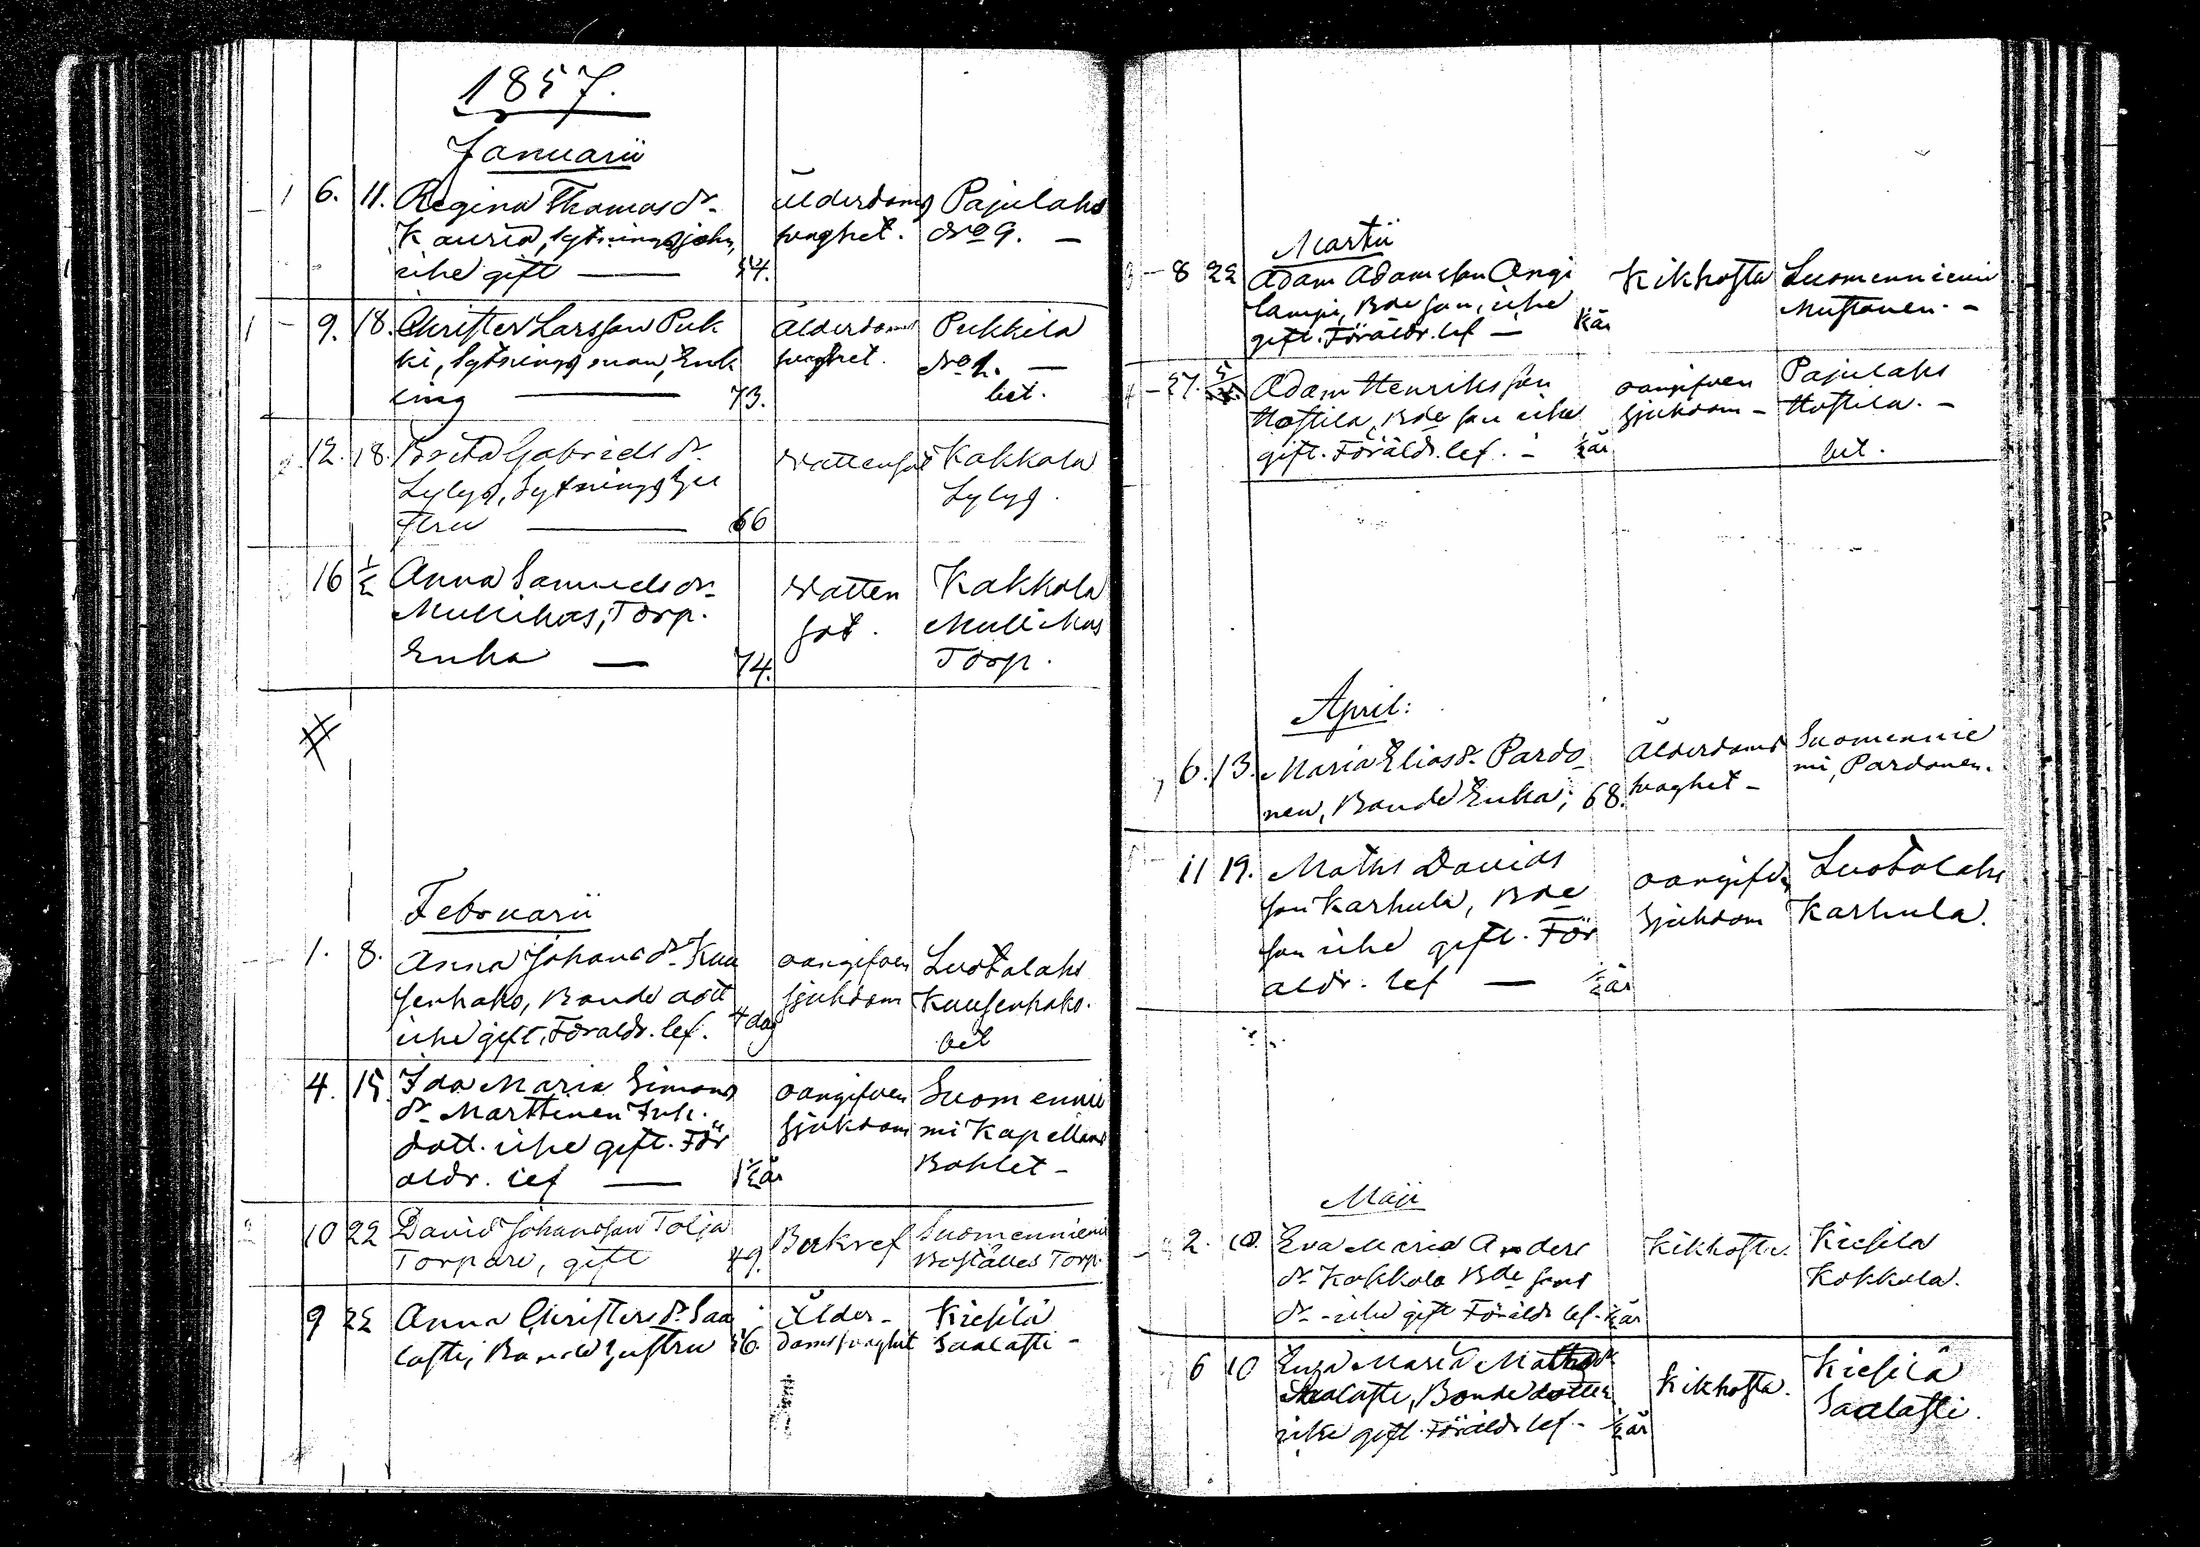 1857.
Januarii
1 6. 11. Regina Thomas dr.
Kauria, Sytningshjon,
icke gift — 54.
Ålderdoms
svaghet.
Pajulaks
No 9. —
1 – 9. 18. Christer Larsson Puk
ki, Sytningsman, Enk
ling — 73.
Ålderdoms
svaghet.
Pukkila
No 1. —
bet.
2. 12. 18. Brita Gabriels dr.
Lylys, Sytnings hu
stru — 66
Vattensot
Kakkola
Lylys.
16 1/2 Anna Samuels dr.
Mullikas, Torp.
Enka — 74.
Vatten
sot.
Kakkola
Mullikas
Torp.
#
Februarii
1. 8. Anna Johans dr. Kuu
senhako, Bonde dott
icke gift. Föräldr. lef. 4 dag
oangifven
sjukdom
Luotolaks
Kuusenhako.
bet
4. 15. Ida Maria Simons
dr. Marttinen Inh.
dott. icke gift. För
äldr. lef — 1 1/2 år
oangifven
sjukdom
Suomennie
mi Kapellans
Bohlet –
10 22 David Johansson Tolja
Torpare, gift 49.
Suomenniemi
Boställes Torp.
9 22 Anna Christers dr. Saa
lasti, Bonde hustru 56.
Ålder-
doms svaghet
Kiesilä
Saalasti –
Martii
– 8 22 Adam Adamsson Angi
lampi, Bde son, icke
gift. Föräldr. lef — 1/2 år
Kikhosta
Suomenniemi
Mustonen. –
– 27. 5/4. Adam Henriksson
Hostila, Bde son icke
gift. Föräldr. lef. – 1/2 år
oangifven
sjukdom –
Pajulaks
Hostila. –
bet.
April:
6. 13. Maria Elias dr. Pardo
nen, Bonde Enka; 68.
Ålderdoms
svaghet –
Suomennie
mi, Pardonen.
11 19. Maths Davids
son Karhula, Bde
son icke gift. För
äldr. lef — 1/2 år
oangifven
sjukdom
Luotolaks
Karhula.
Maji
2. 10. Eva Maria Anders
dr. Kokkola Bde sons
dr. icke gift Föräldr lef. 1/2 år
Kikhosta.
Kiesilä
Kokkola.
6 10 Eva Maria Maths dr
Saalasti, Bonde dotter
icke gift. Föräldr lef – 1/2 år
Kikhosta.
Kiesilä
Saalasti.